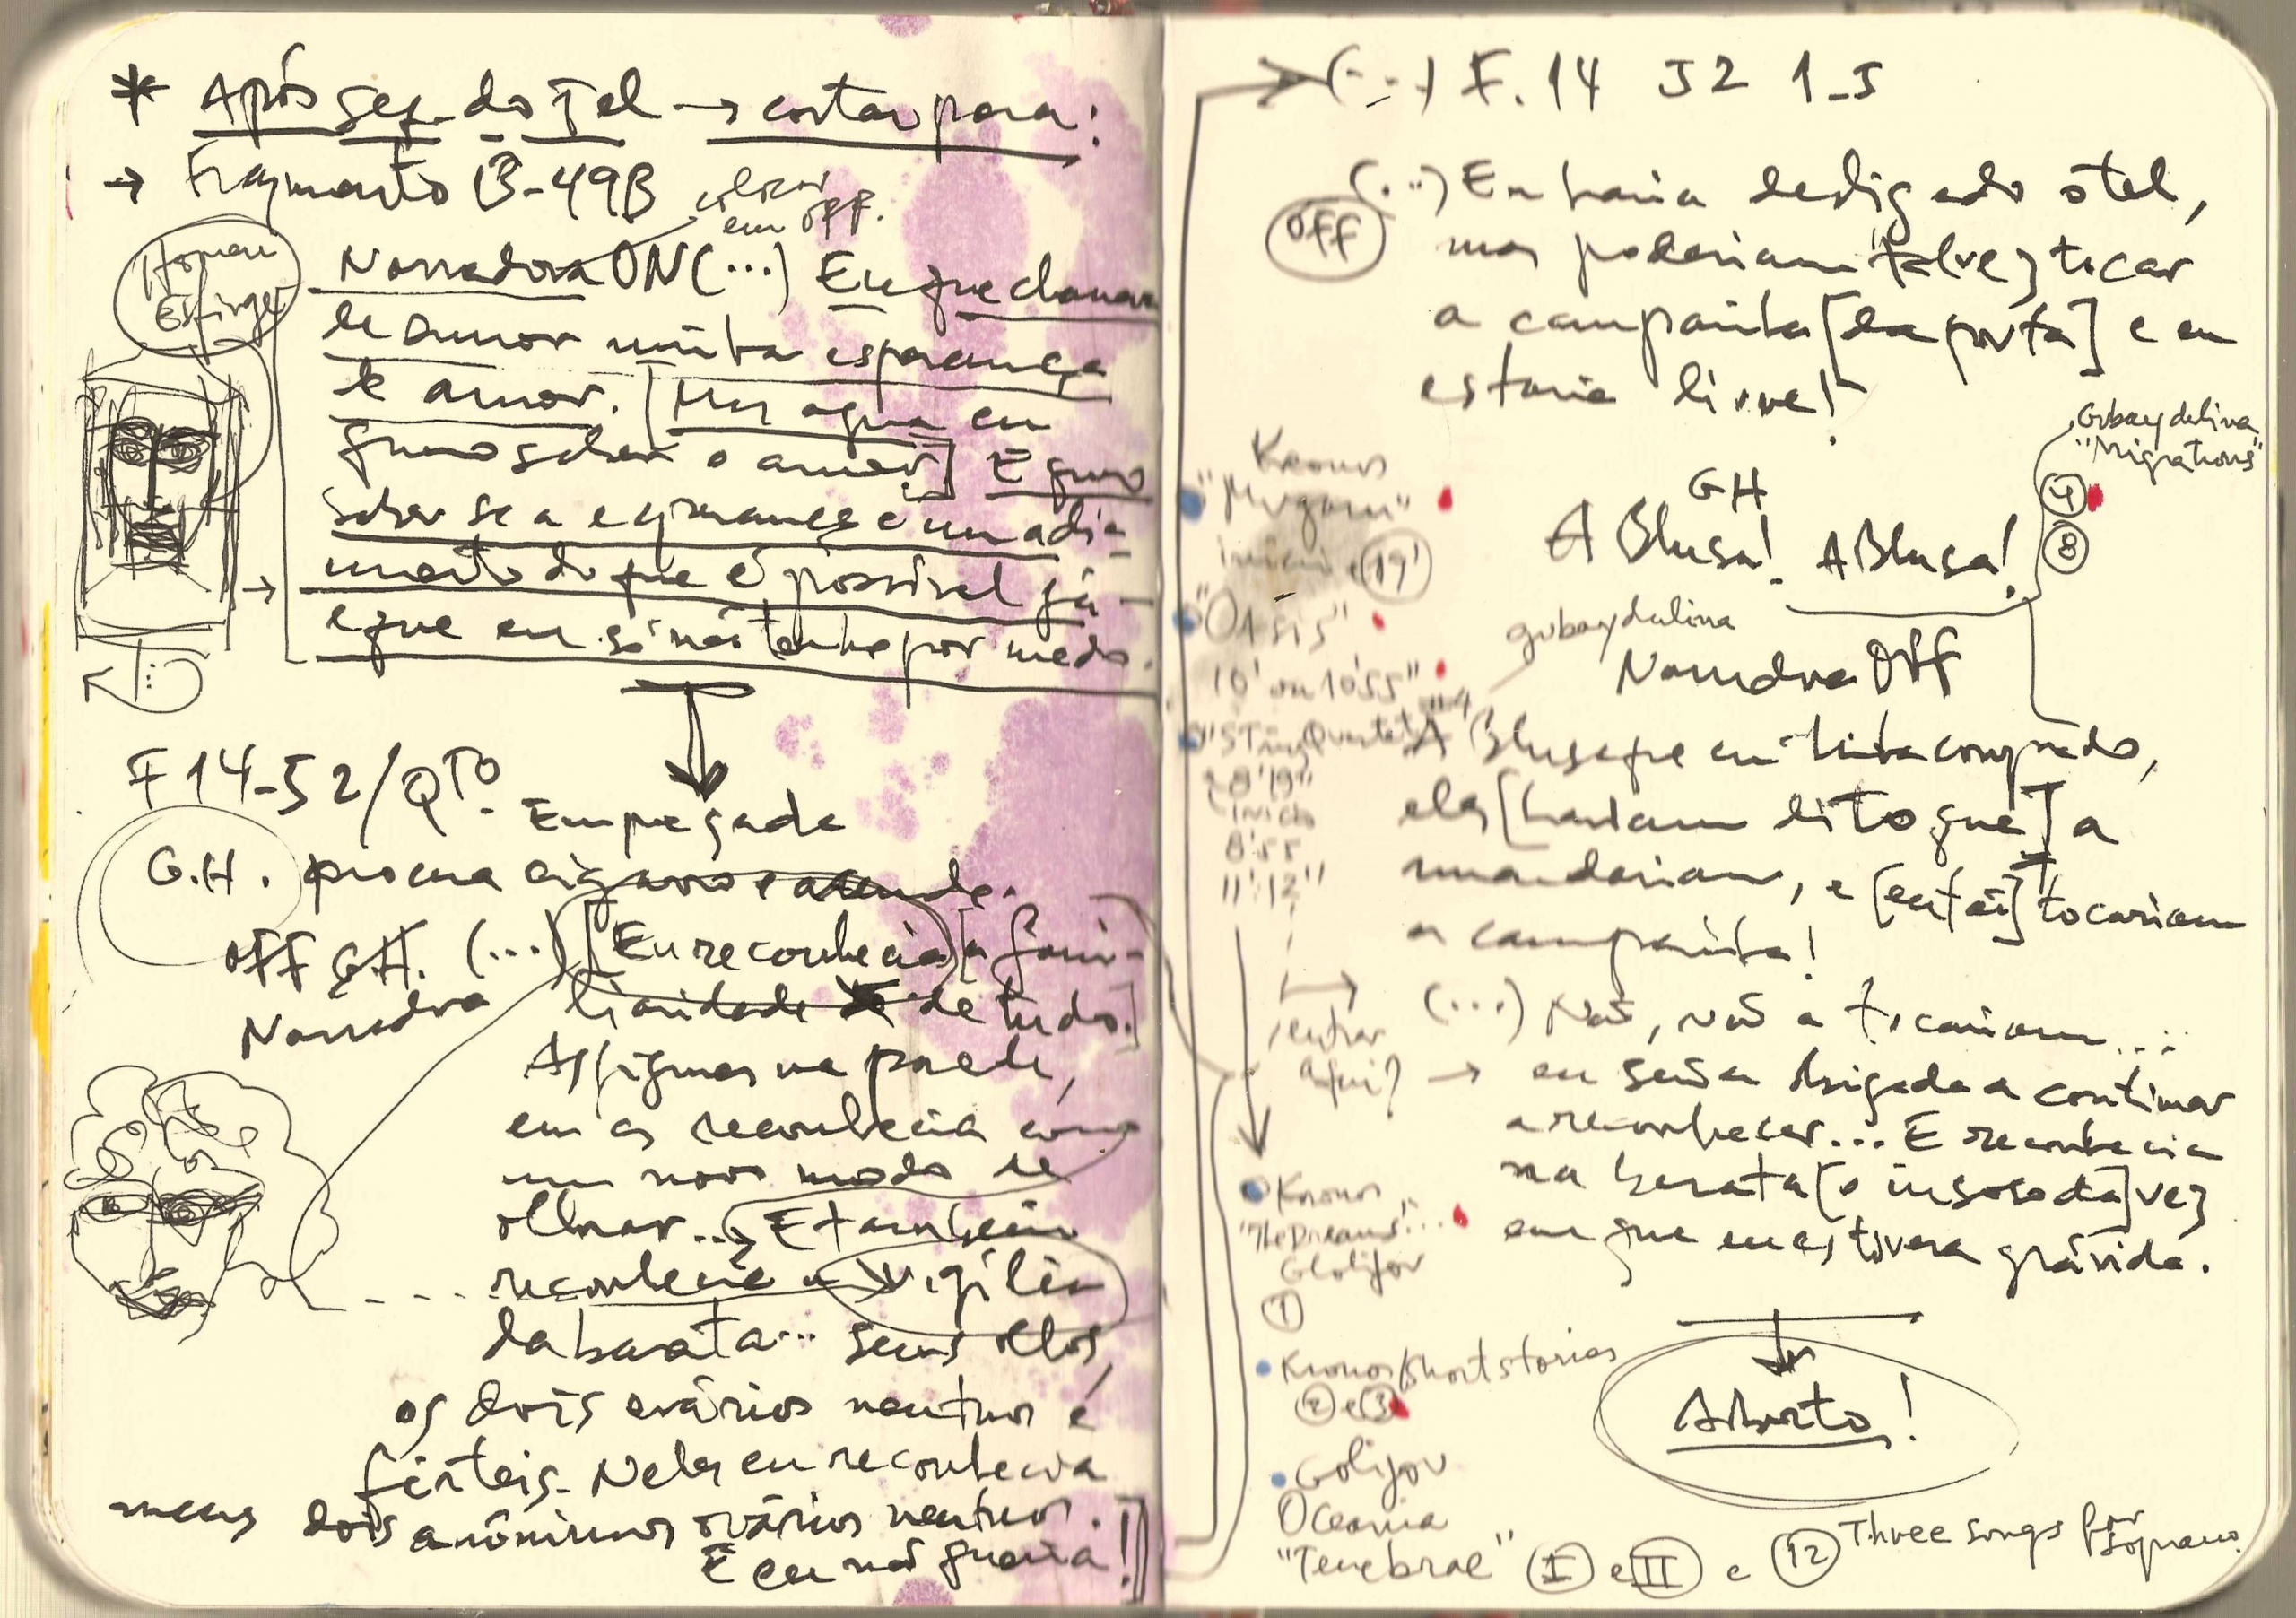 * Após seq. do Tel → cortar para:
→ Fragmento 13-49B
colocar
em off.
Homem
Esfinge
Narradora ON (...) Eu que chamava
de amor minha esperança
de amor. [Mas agora eu
quero saber o amor] E quero
saber se a esperança é um adia-
mento do que é possível já
e que eu só não tenho por medo.
F 14-52/QTO.
Empregada
G.H. procura cigarro e acende.
OFF G.H. (...) [Eu reconhecia] [a fami-
liaridade de tudo.]
Narradora
As figuras na parede,
eu as reconhecia com
um novo modo de
olhar... E também
reconhecia a vigília
da barata... seus olhos,
os dois ovários neutros e
férteis. Neles eu reconhecia
meus dois anônimos ovários neutros.
E eu não queria!
(...) F. 14 52 1_5
OFF
(...) Eu havia desligado o tel,
mas poderiam talvez tocar
a campainha [da porta] e eu
estaria livre!
Gubaydulina
"Migrations"
4
8
GH
A Blusa! A Blusa!
gubaydulina
Narradora OFF
A Blusa que eu tinha comprado,
eles [haviam dito que] a
mandariam, e [então] tocariam
a campainha!
(...) Não, não a tocariam...
eu seria obrigada a continuar
a reconhecer... E reconhecia
na barata [o insosso da] vez
em que eu estivera grávida.
Aborto!
Kronos
"Mugam"
início (19')
"OAsis"
10' ou 10'55"
"String Quartet #4
8'19"
início
8'55
11'12"
entrar
aqui? →
Kronos
"The Dreams"...
Golijov
1
Kronos/Short stories
2 e 3
Golijov
Oceania
"Tenebrae" I e II e 12 Three songs for
soprano.